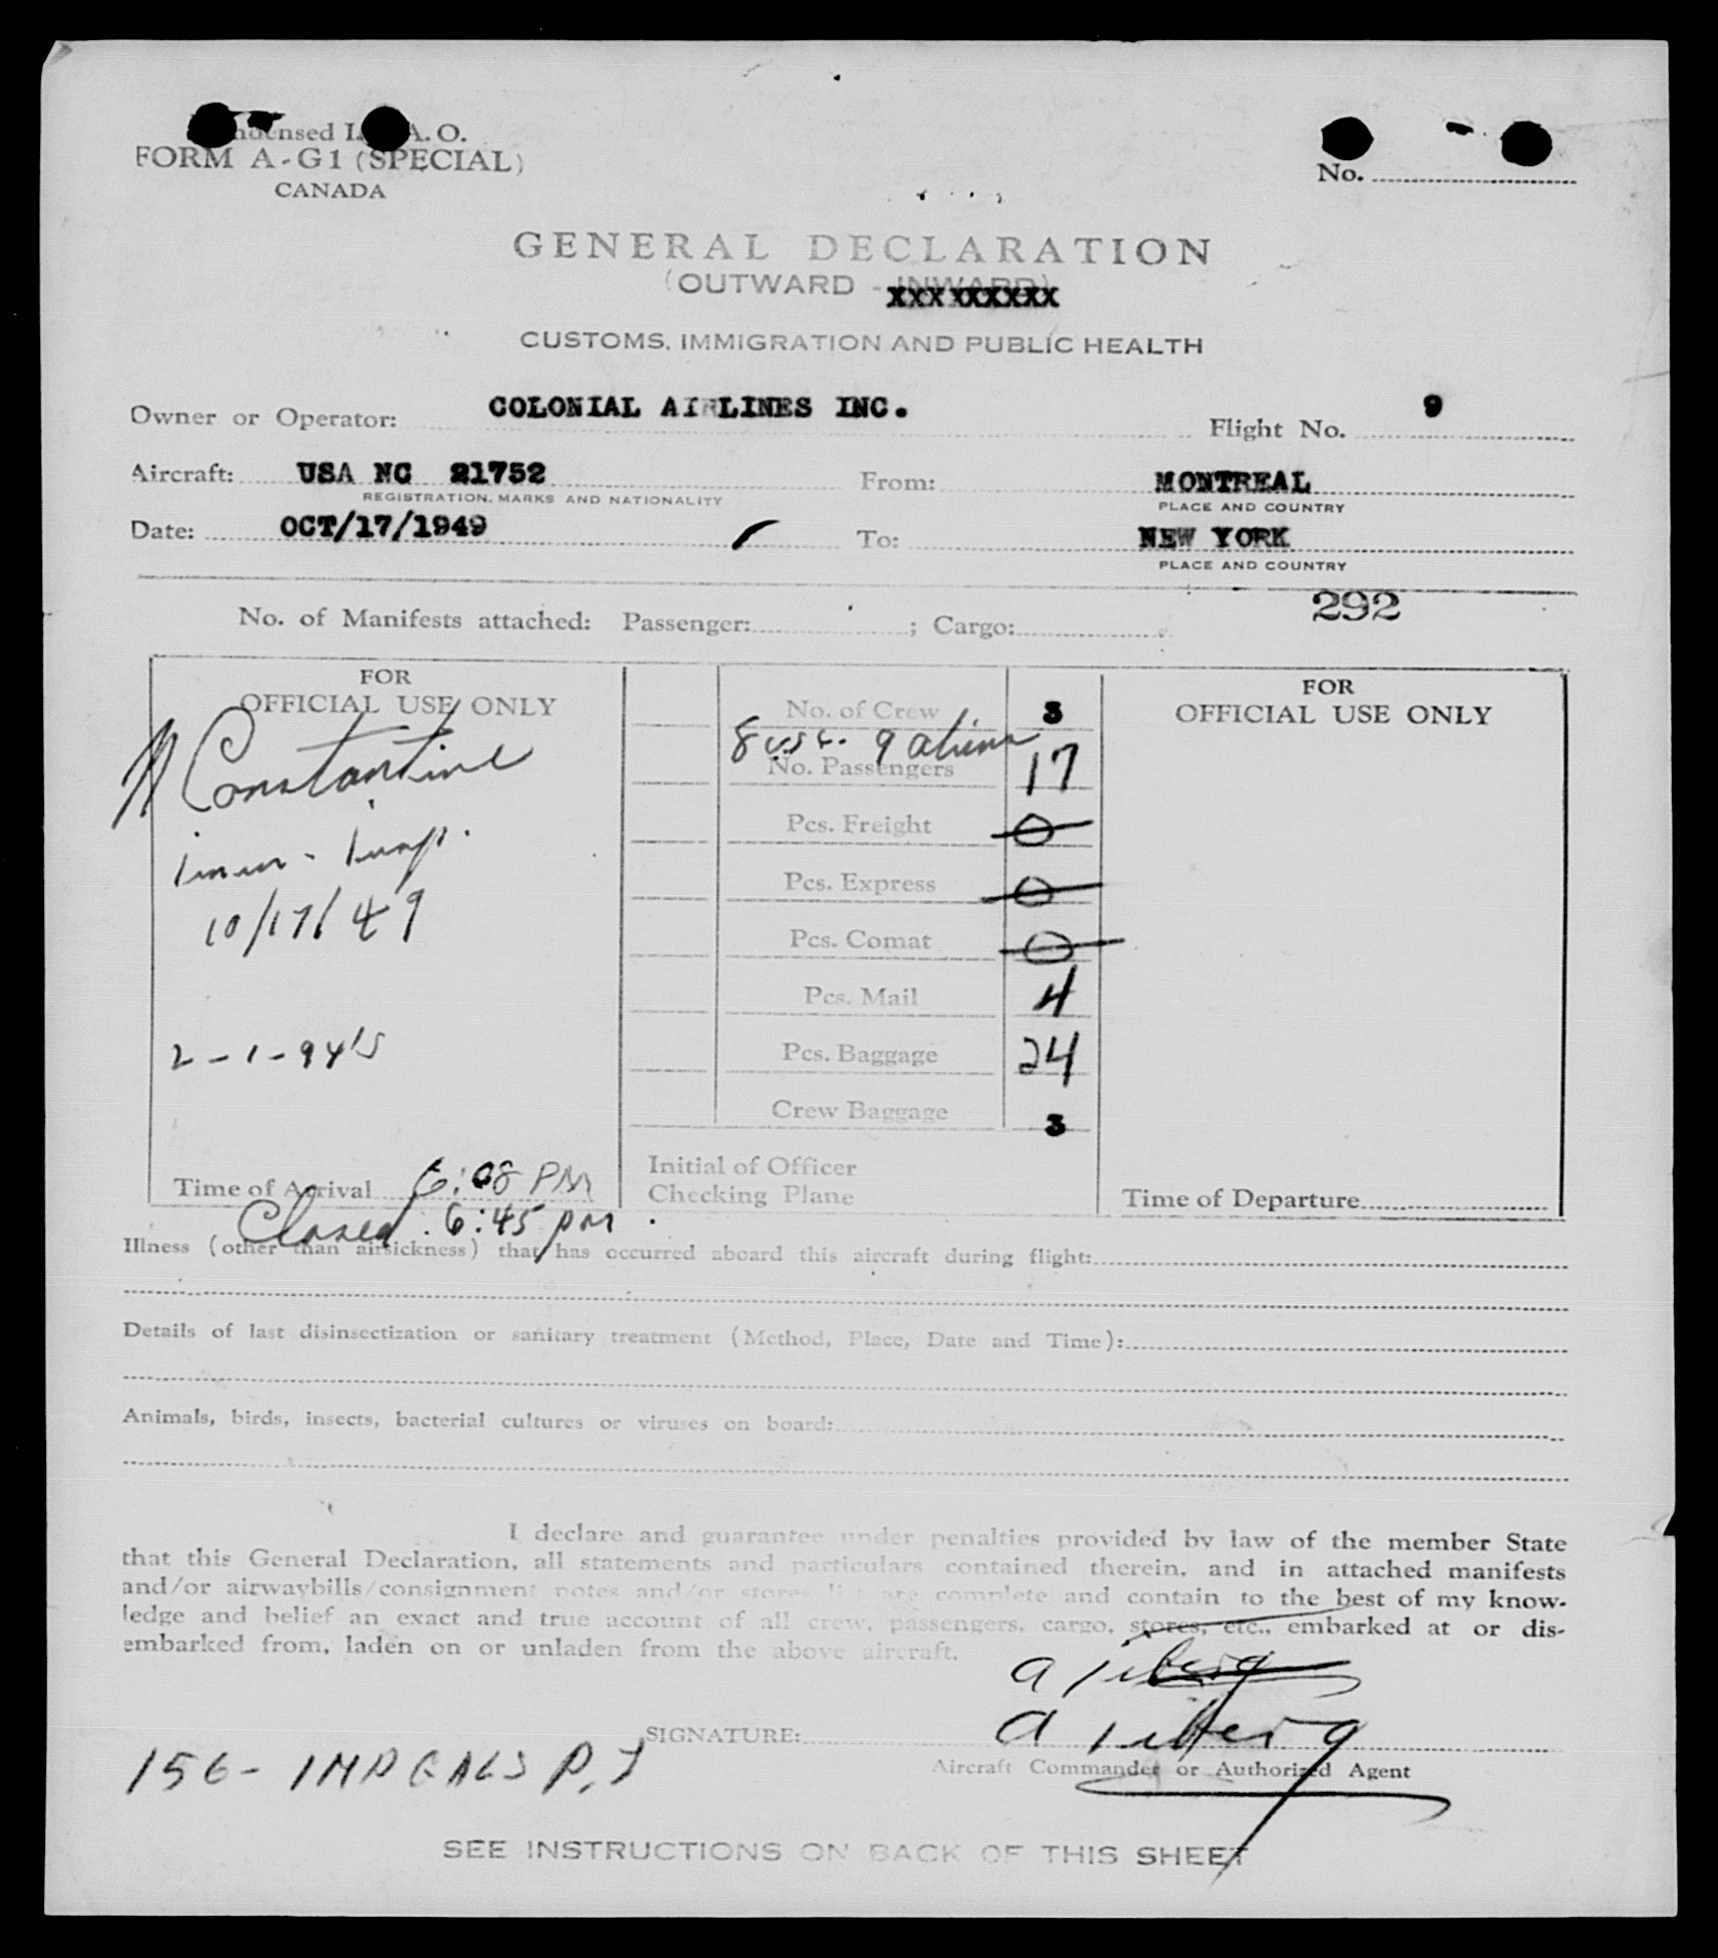 Condensed I.C.A.O.
FORM A-G1 (SPECIAL)
CANADA
No.
GENERAL DECLARATION
(OUTWARD - INWARD)
XXXXXXXXX
CUSTOMS, IMMIGRATION AND PUBLIC HEALTH
Owner or Operator: COLONIAL AIRLINES INC. Flight No. 9
Aircraft: USA NC 21752 From: MONTREAL
REGISTRATION, MARKS AND NATIONALITY PLACE AND COUNTRY
Date: OCT/17/1949 To: NEW YORK
PLACE AND COUNTRY
292
No. of Manifests attached: Passenger: ; Cargo:
FOR
OFFICIAL USE ONLY
Constantine
10/17/49
Time of Arrival 6:08 PM
Closed. 6:45 pm.
No. of Crew 3
8 9 aliens
No. Passengers 17
Pcs. Freight 0
Pcs. Express 0
Pcs. Comat 0
Pcs. Mail 4
Pcs. Baggage 24
Crew Baggage 3
Initial of Officer
Checking Plane
FOR
OFFICIAL USE ONLY
Time of Departure
Illness (other than airsickness) that has occurred aboard this aircraft during flight:
Details of last disinsectization or sanitary treatment (Method, Place, Date and Time):
Animals, birds, insects, bacterial cultures or viruses on board:
I declare and guarantee under penalties provided by law of the member State
that this General Declaration, all statements and particulars contained therein, and in attached manifests
and/or airwaybills/consignment notes and/or stores list are complete and contain to the best of my know-
ledge and belief an exact and true account of all crew, passengers, cargo, stores, etc., embarked at or dis-
embarked from, laden on or unladen from the above aircraft.
SIGNATURE:
Aircraft Commander or Authorized Agent
156-
SEE INSTRUCTIONS ON BACK OF THIS SHEET